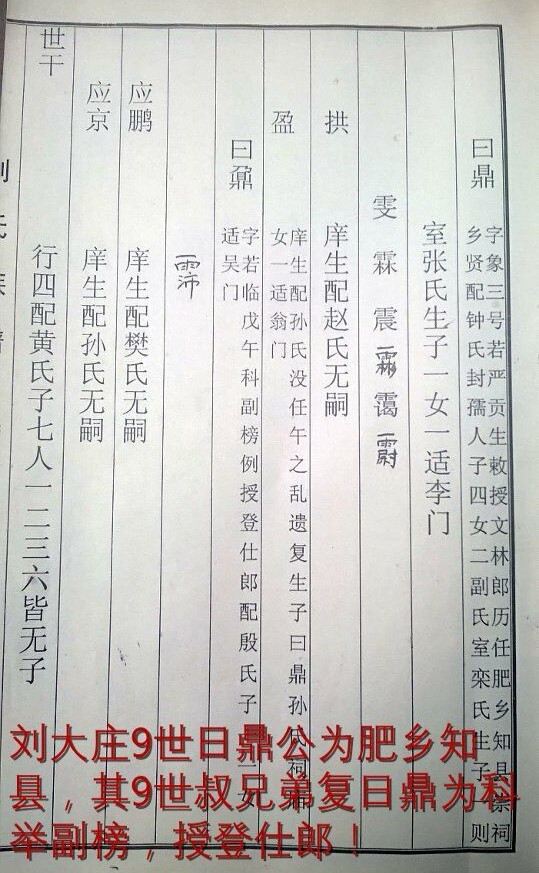 曰鼎
字象三号若严贡生敕授文林郎历任肥乡知县崇祠
乡贤配钟氏封孺人子四女二副氏室栾氏生子一则
室张氏生子一女一适李门
雯霖震靄
拱
庠生配赵氏无嗣
盈
庠生配孙氏没任午之乱遗复生子曰鼎孙
女一适翁门
曰鼐
字若临戊午科副榜例授登仕郎配殷氏子
适吴门
霈
应鹏
庠生配樊氏无嗣
应京
庠生配孙氏无嗣
世干
行四配黄氏子七人一二三六皆无子
刘大庄9世日鼎公为肥乡知
县，其9世叔兄弟复日鼎为科
举副榜，授登仕郎！